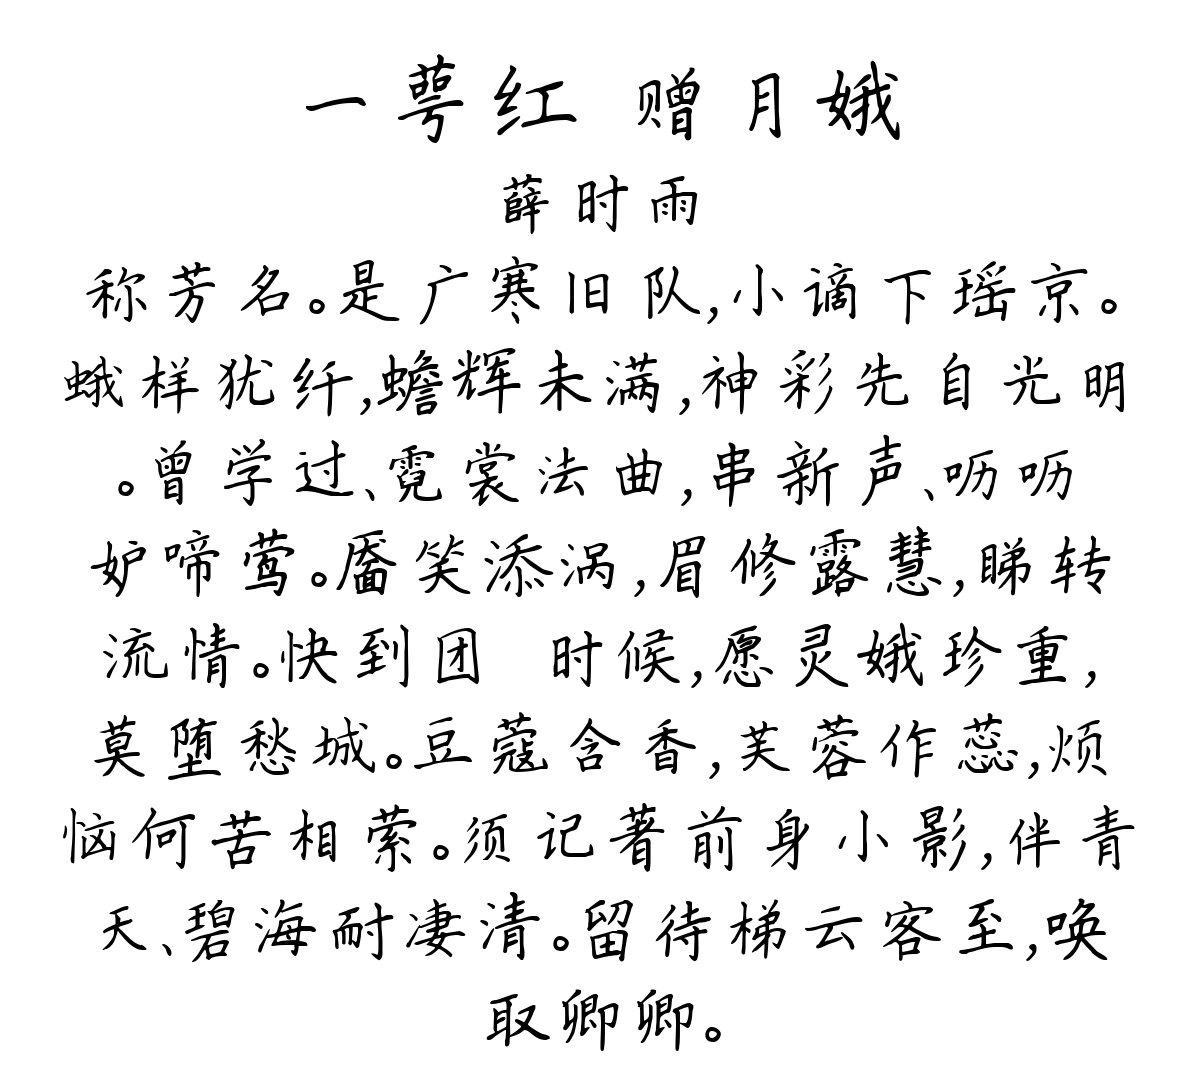 一萼红 赠月娥
薛时雨
称芳名。是广寒旧队,小谪下瑶京。
蛾样犹纤,蟾辉未满,神彩先自光明
。曾学过、霓裳法曲,串新声、呖呖
妒啼莺。靥笑添涡,眉修露慧,睇转
流情。快到团 时候,愿灵娥珍重,
莫堕愁城。豆蔻含香,芙蓉作蕊,烦
恼何苦相萦。须记著前身小影,伴青
天、碧海耐凄清。留待梯云客至,唤
取卿卿。